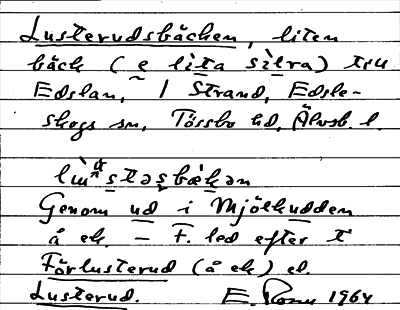 Lusterudsbäcken, liten
bäck (e lìta sìlra) till
Edslan, / Strand, Edsle-
skogs sn, Tössbo hd, Älvsb. l.
Genom ud i Mjölkudden
å ek. – F. led efter t
Förlusterud (å ek) el.
Lusterud. E. 1964